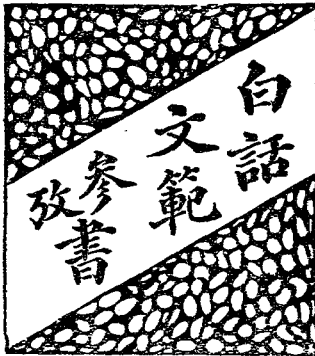 白話
文範
參攷書